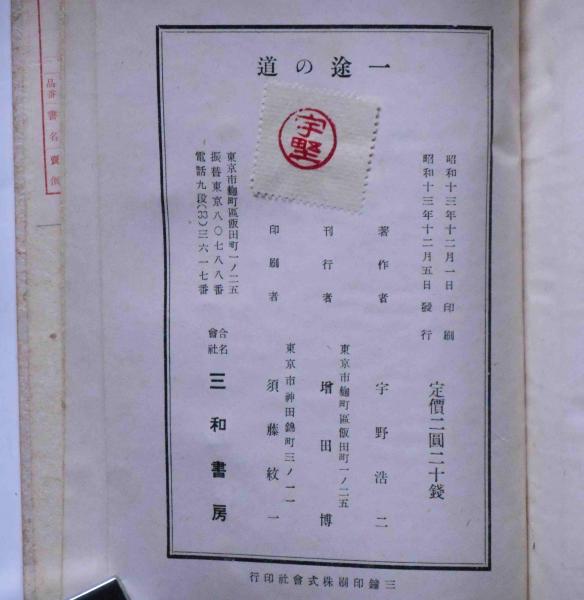 一途の道
宇野
昭和十三年十二月一日印刷
昭和十三年十二月五日發行
定價二圓二十錢
著作者 宇野浩二
東京市麹町區飯田町一ノ二五
刊行者 增田博
東京市神田錦町三ノ一一
印刷者 須藤紋一
東京市麹町區飯田町一ノ二五
振替東京八〇七八八番
電話九段(33)三六一七番
合名會社 三和書房
三鐘印刷株式會社印行
品番 書名 賣價